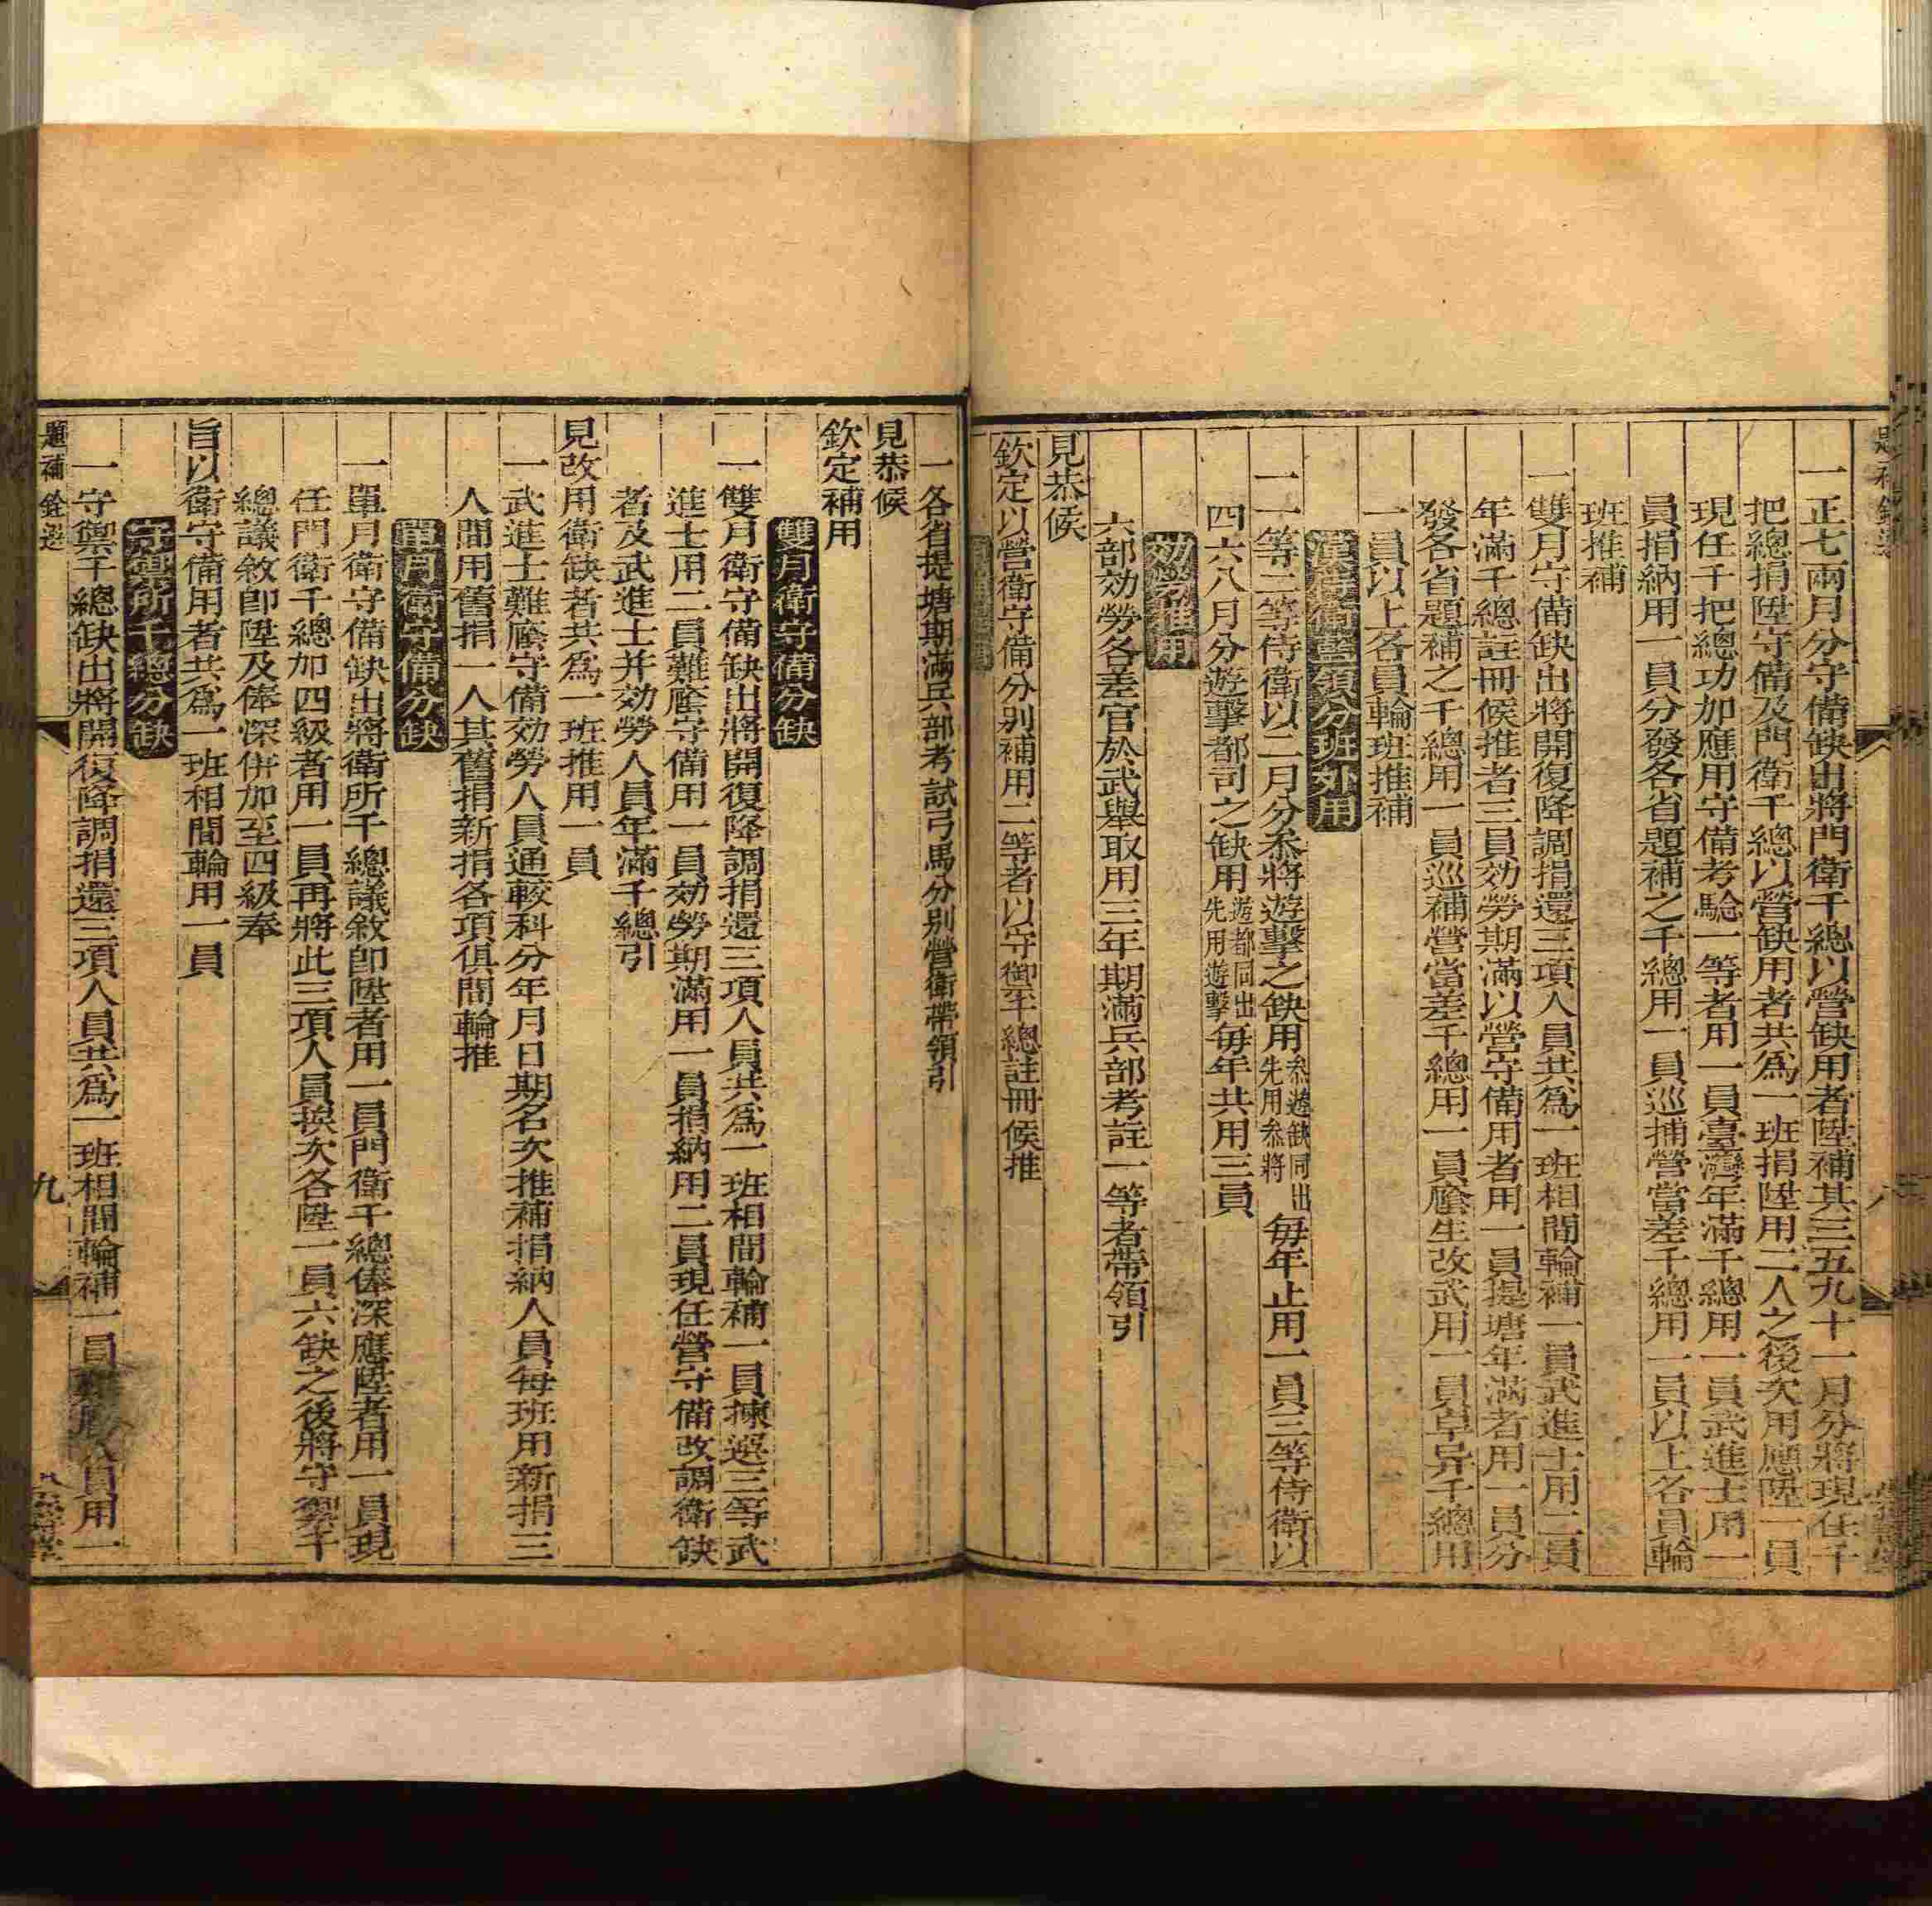 一正七兩月分守備缺出將門衛千總以營缺用者陞補其三五九十一月分將現任千
把總捐陞守備及門衛千總以營缺用者共爲一班捐陞用二人之後次用應陞一員
現任千把總功加應用守備考驗一等者用一員臺灣年滿千總用一員武進士用一
員捐納用一員分發各省題補之千總用一員巡捕營當差千總用一員以上各員輪
班推補
一雙月守備缺出將開復降調捐還三項人員共爲一班相間輪補一員武進士用二員
年滿千總註冊候推者三員効勞期滿以營守備用者用一員提塘年滿者用一員分
發各省題補之千總用一員巡補營當差千總用一員廕生改武用一員卓异千總用
一員以上各員輪班推補
分班外用
一一等二等侍衛以二月分叅將遊擊之缺用叅遊缺同出先用叅將每年止用一員三等侍衛以
四六八月分遊擊都司之缺用遊都同出先用遊擊每年共用三員
効勞推用
六部効勞各差官於武舉取用三年期滿兵部考註一等者帶領引
見恭候
欽定以營衛守備分别補用二等者以守御千總註冊候推
一各省提塘期滿兵部考試弓馬分别營衛帶領引
見恭候
欽定補用
雙月衛守備分缺
一雙月衛守備缺出將開復降調捐還三項人員共爲一班相間輪補一員揀選三等武
進士用二員難廕守備用一員効勞期滿用一員捐納用二員現任營守備改調衛缺
者及武進士并効勞人員年滿千總引
見改用衛缺者共爲一班推用一員
一武進士難廕守備効勞人員通較科分年月日期名次推補捐納人員每班用新捐三
人間用舊捐一人其舊捐新捐各項俱間輪推
單月衛守備分缺
一單月衛守備缺出將衛所千總議敘卽陞者用一員門衛千總俸深應陞者用一員現
任門衛千總加四級者用一員再將此三項人員挨次各陞一員六缺之後將守禦千
總議敘卽陞及俸深併加至四級奉
旨以衛守備用者共爲一班相間輪用一員
守禦所千總分缺
一守禦千總缺出將開復降調捐還三項人員共爲一班相間輪補一員難廕人員用一
題補銓選
九